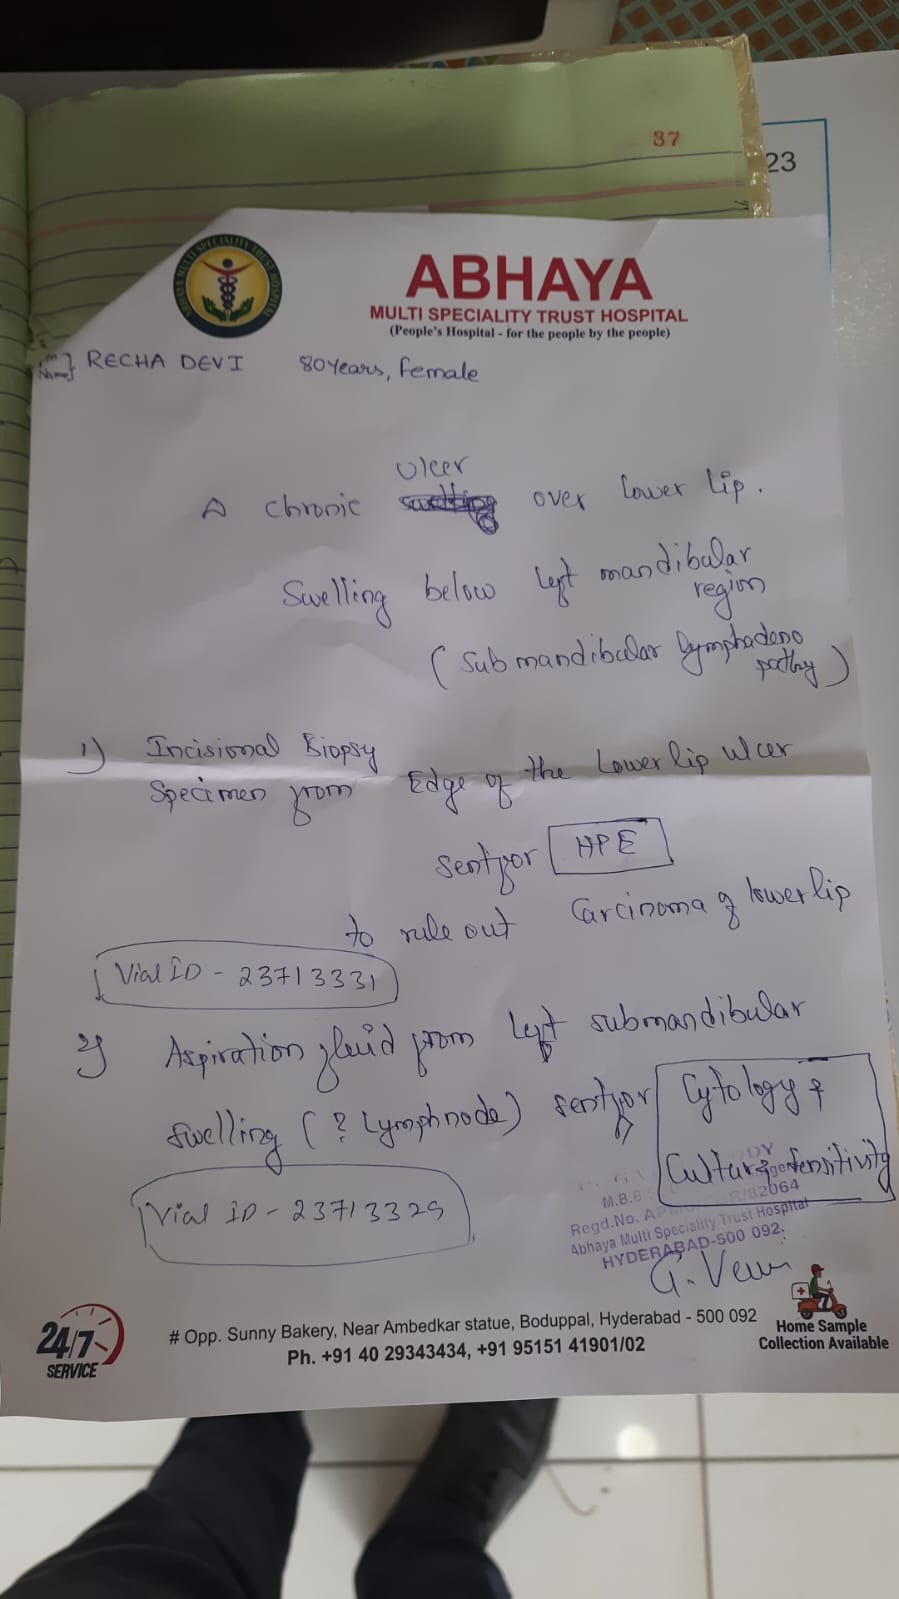 37
23
ABHAYA MULTI SPECIALITY TRUST HOSPITAL
ABHAYA
MULTI SPECIALITY TRUST HOSPITAL
(People's Hospital - for the people by the people)
Name} RECHA DEVI 80 Years, Female
Ulcer
Δ chronic over lower lip.
Swelling below left mandibular
region
(Submandibular lymphadeno
pathy)
1) Incisional Biopsy
Specimen from Edge of the Lower lip ulcer
sent for HPE
to rule out Carcinoma of lower lip
Vial ID - 23713331
2) Aspiration fluid from left submandibular
swelling (? Lymphnode) sent for Cytology &
Culture & Sensitivity
Vial ID - 23713329
M.B.B.
Regd.No. /82064
Abhaya Multi Speciality Trust Hospital
HYDERABAD-500 092.
24/7
SERVICE
# Opp. Sunny Bakery, Near Ambedkar statue, Boduppal, Hyderabad - 500 092
Ph. +91 40 29343434, +91 95151 41901/02
Home Sample
Collection Available